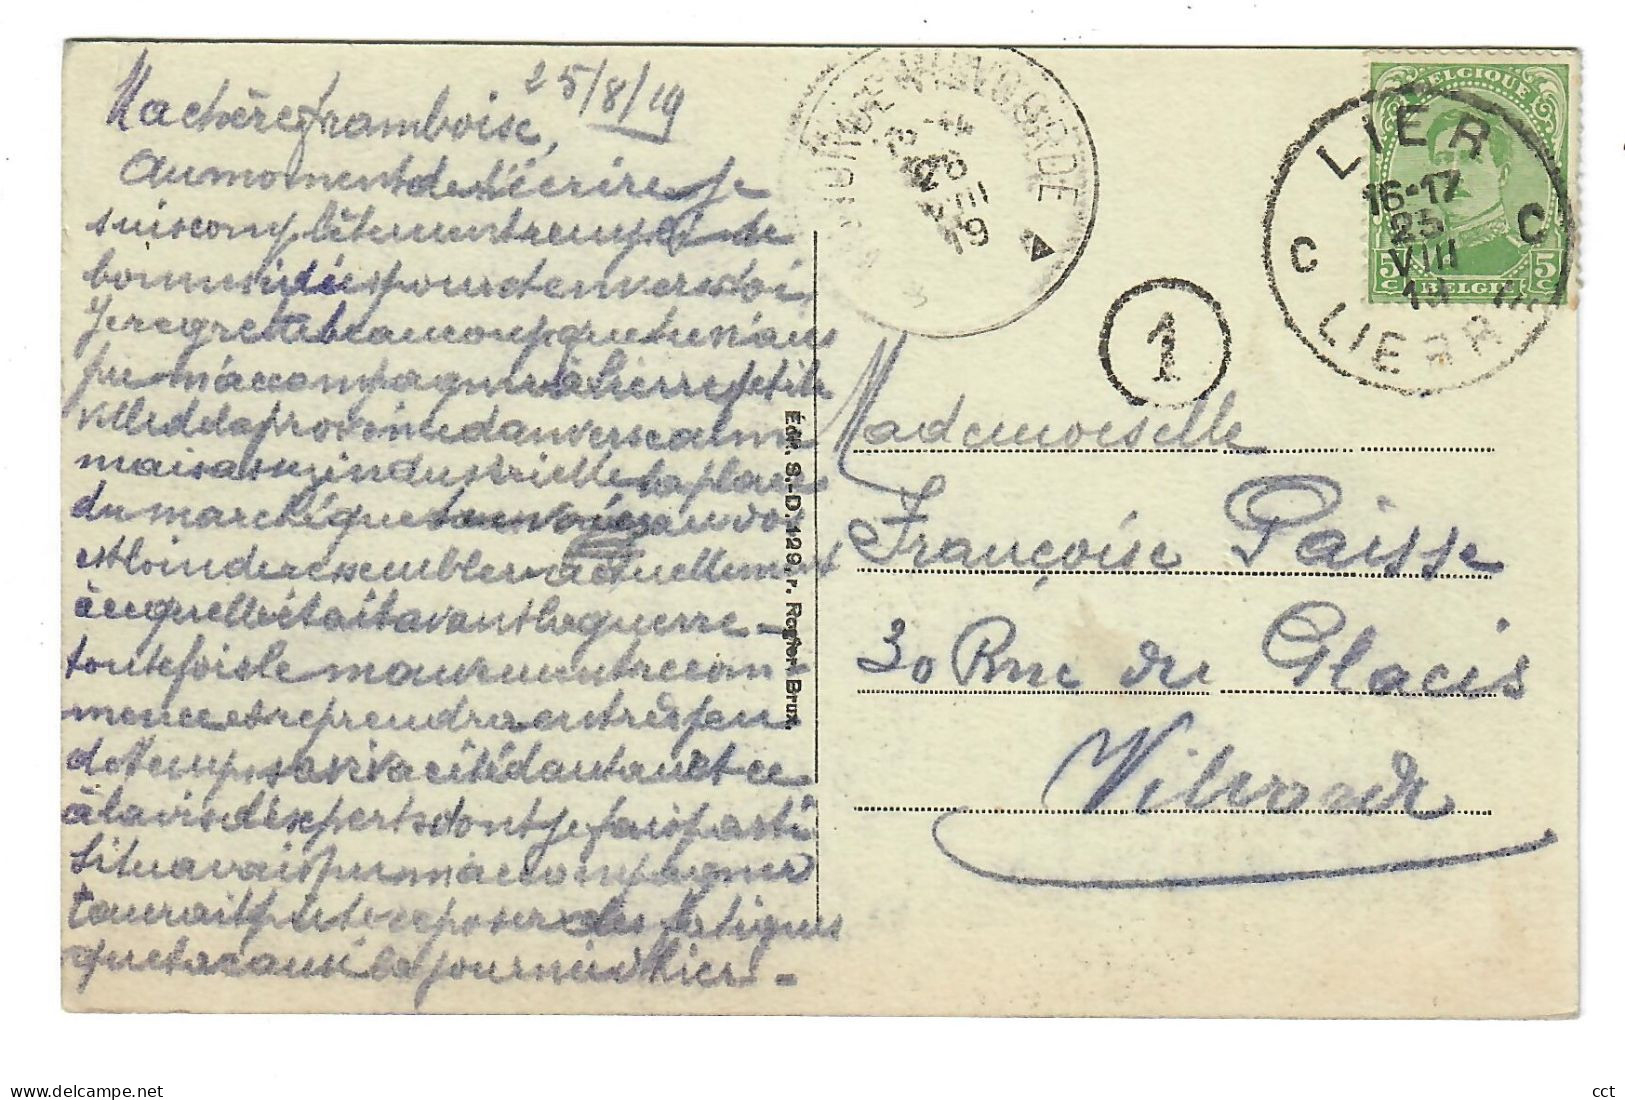 25/8/19
Ma chère Framboise,
Au moment de t'écrire je
suis complètement rempli de
bonnes idées pour et envers toi,
Je regrette beaucoup que tu n'aies
pu m'accompagner à Lierre petite
ville de la province d'Anvers calme
mais assez industrielle la place
du marché que tu
est loin de ressembler actuellement
à ce qu'elle était avant la guerre –
toutefois le mouvement recom-
mence et reprendra entre peu
de temps sa vivacité d'antan et ce
à l'avis d'experts dont je fais partie
Si tu avais pu m'accompagner
t'aurait pu te reposer des fatigues
que t'a causé la journée d'hier –
Édit. S.-D. 129, r. Rogier. Brux.
VILVORDE
19
1
BELGIQUE
5 c 5 c
BELGIE
LIER
16-17
25
VIII
19
C C
LIERRE
Mademoiselle
Françoise Paisse
30 Rue du Glacis
Vilvorde
cct